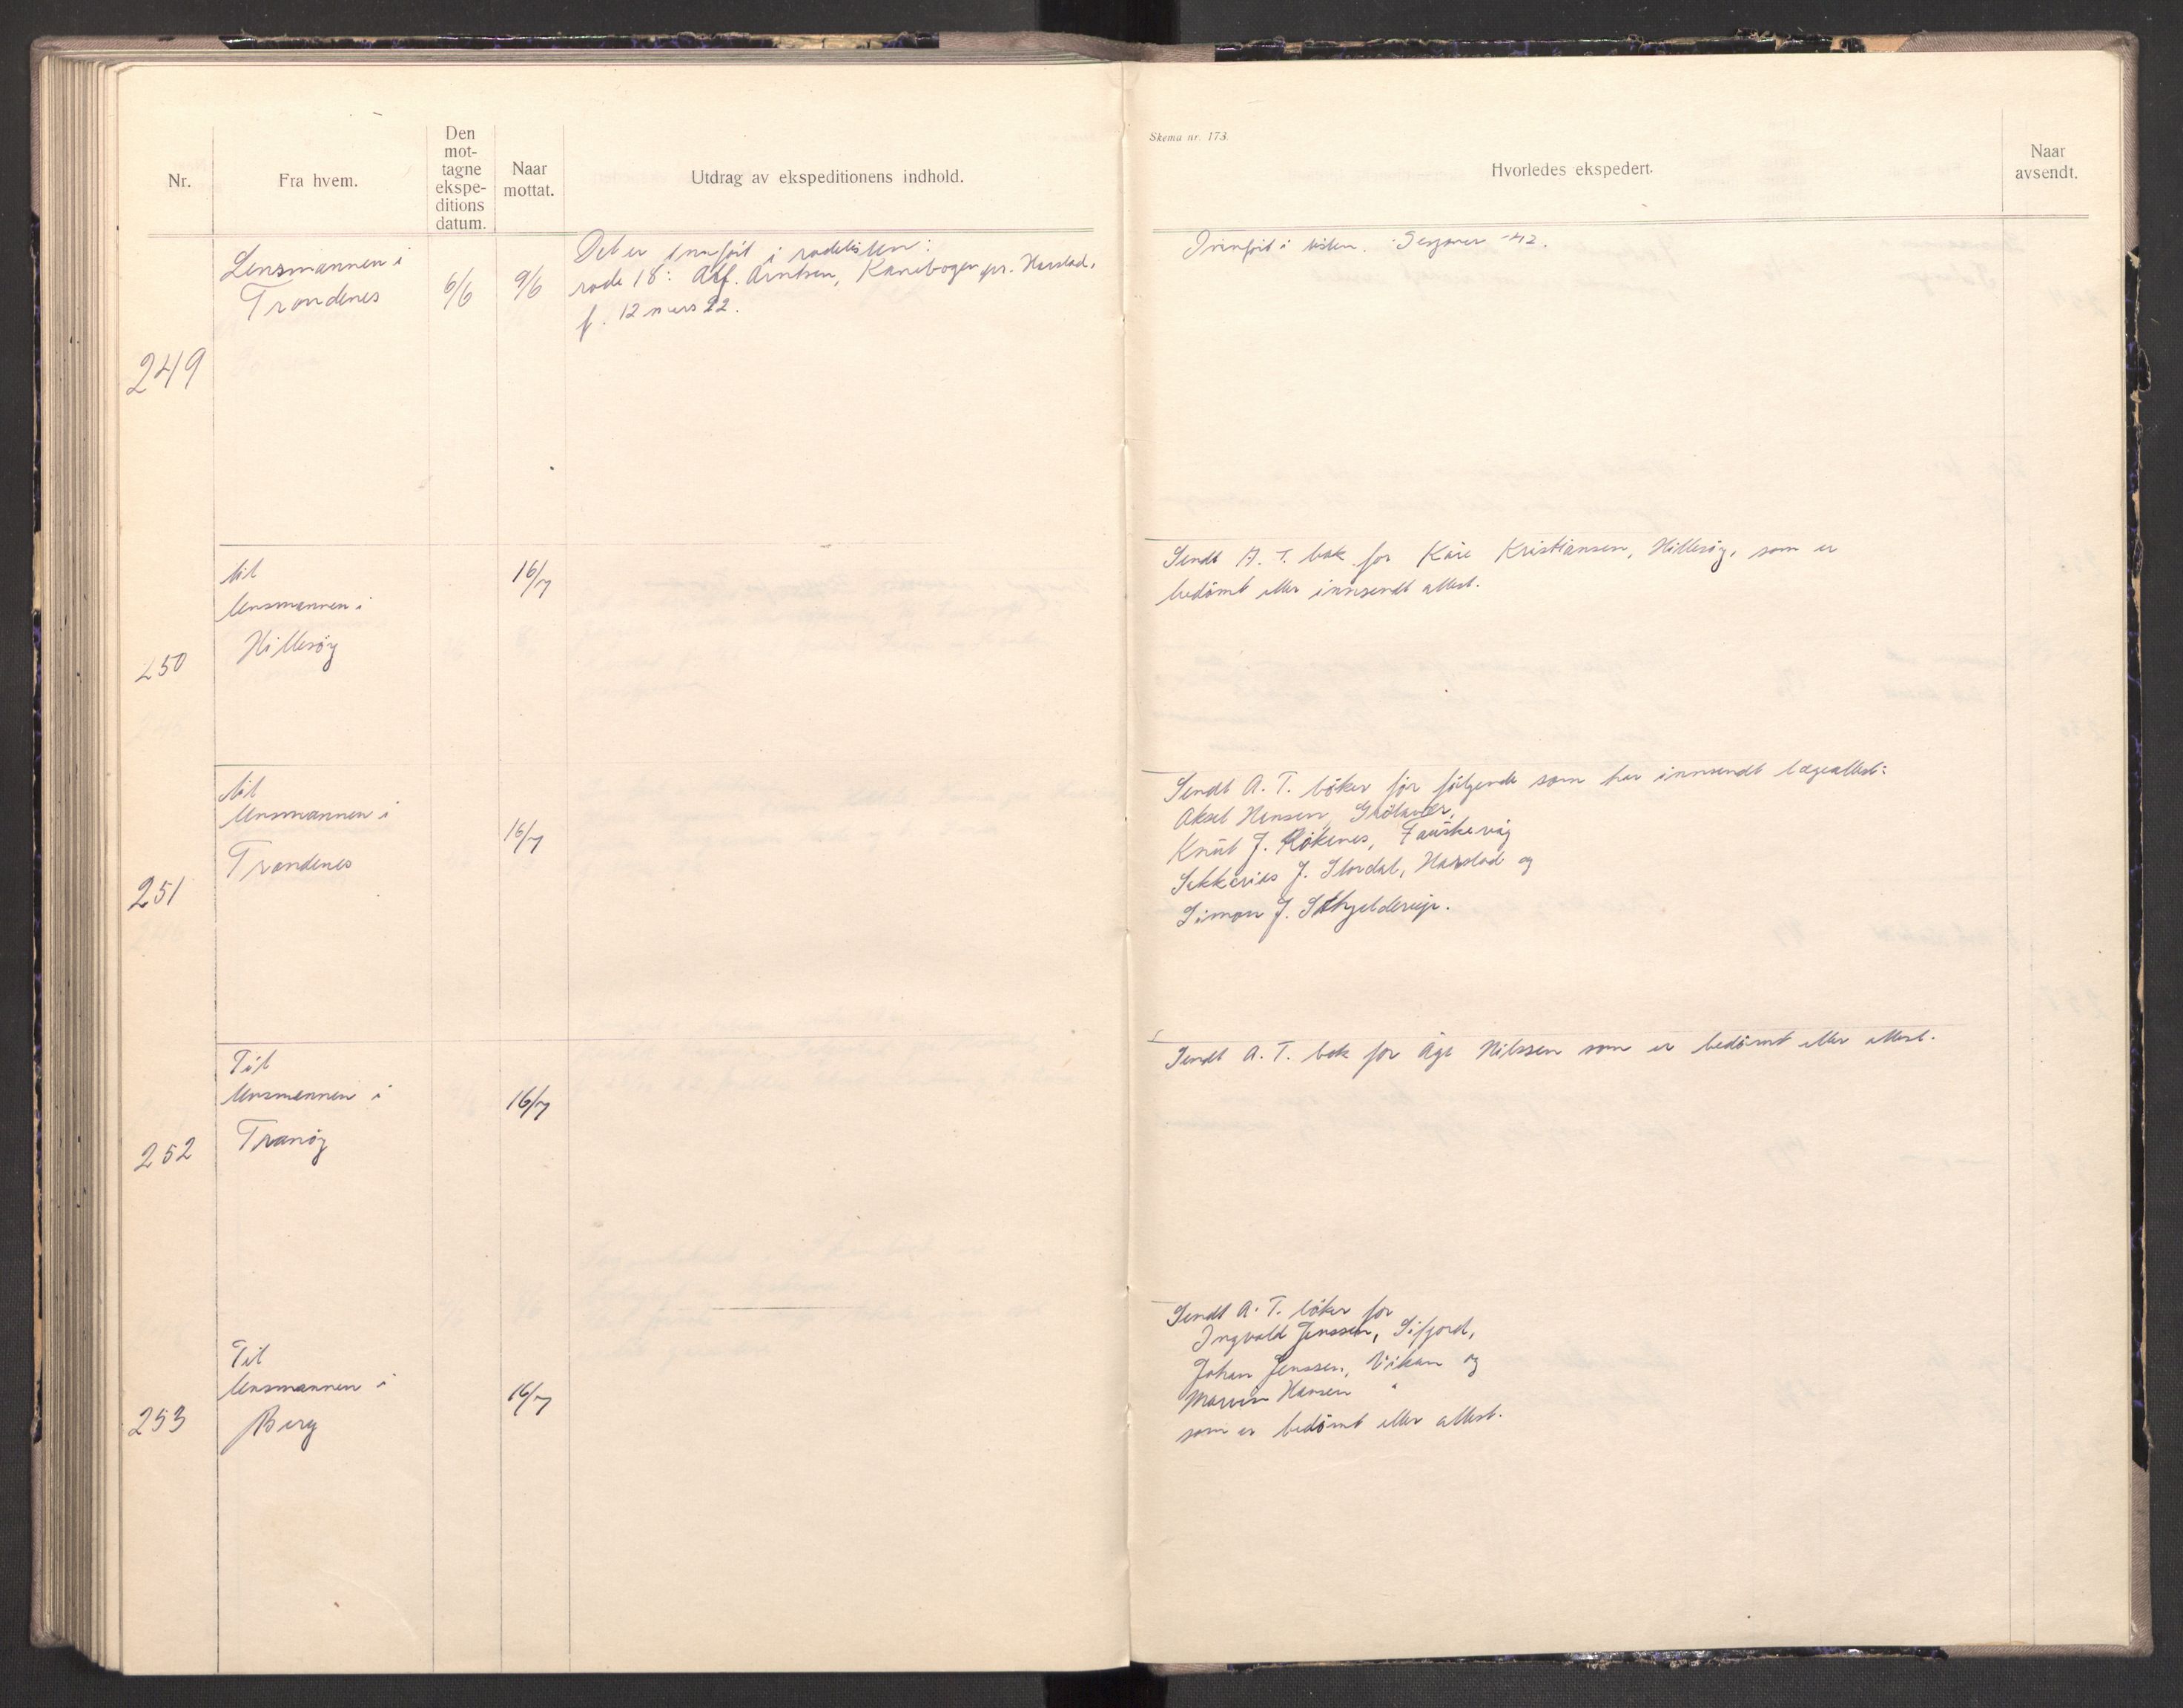 Nr.
Fra hvem.
Den
mot-
tagne
ekspe-
ditions
datum.
Naar
mottat.
Utdrag av ekspeditionens indhold.
Skema nr. 173.
Hvorledes ekspedert.
Naar
avsendt.
249
Lensmannen i
Trondenes
6/6
9/6
Det er innført i rodelisten:
rode 18: Alf. Arntsen, Kanebogen pr. Harstad,
f. 12 mars 22.
Innført i listen. -42.
250
til
lensmannen i
Hillesøy
16/7
Sendt A. T. bok for Kåre Kristiansen, Hillesøy, som er
bedømt eller innsendt attest.
251
til
lensmannen i
Trondenes
16/7
Sendt A. T. bøker for følgende som har innsendt lægeattest:
Aksel Hansen,
Knut J. Røkenes, Fauskevåg
Sakkarias J. Stordal, Harstad og
Simon J.
252
Til
lensmannen i
Tranøy
16/7
Sendt A. T. bok for Åge Nilssen som er bedømt eller attest.
253
Til
lensmannen i
Berg
16/7
Sendt A. T. bøker for
Ingvald Jenssen, Sifjord,
Johan Jenssen, Vikan og
Marvin Hansen "
som er bedømt eller attest.